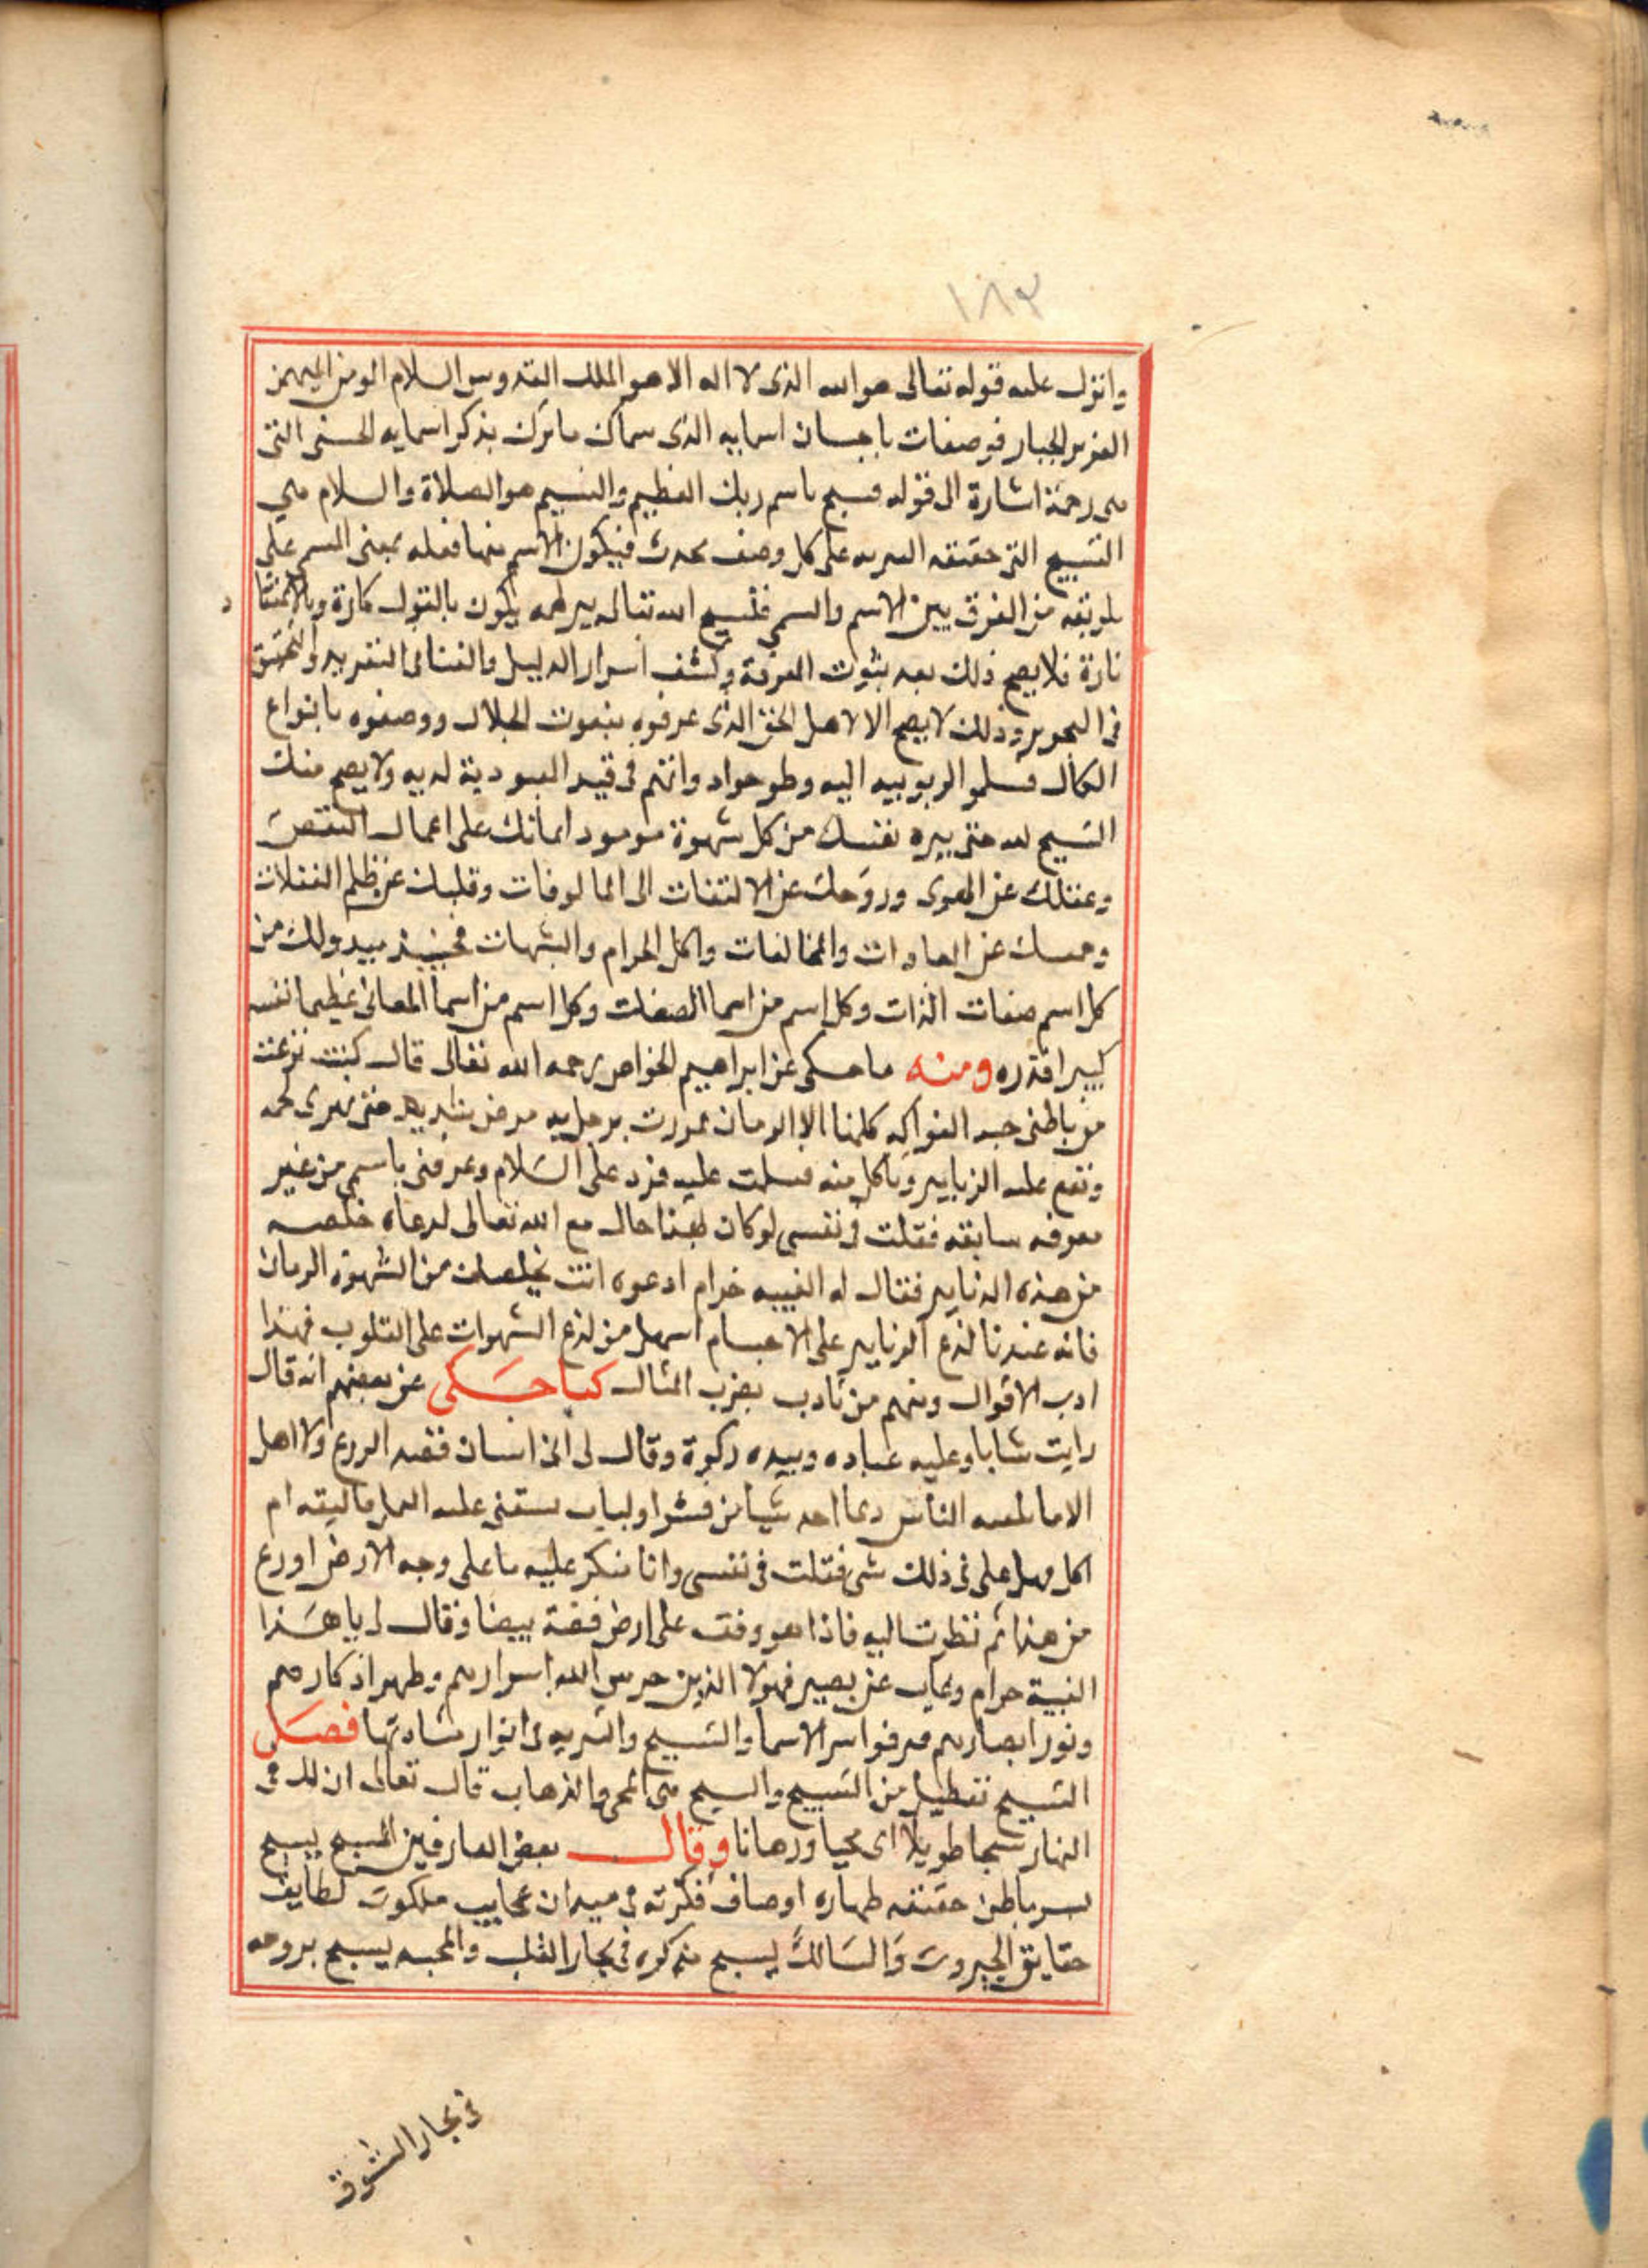 ١٨٣
وانزل عليه قوله تعالى هو الله الذى لا اله الا هو الملك القدوس السلام المومن المهيمن
العزيز الجبار فوصفات باحسان اسمايه الذى سماك مانرك بذكر اسمايه الحسنى التى
هى رحمة اشارة الى قوله فسبح باسم ربك العظيم والتسبيح هو الصلاة والسلام هي
التسبيح التى حقيقته على كل وصف محدث فيكون الاسم منها فعله بمعنى المسمى على
طريقه من الفرق بين الاسم والمسمى فتسبيح الله تعالى يكون بالقول تارة وبالاعتقاد
تارة فلا يصح ذلك بعد ثبوت المعرفة وكشف اسرار الدليل والفنا فى التفريد والتحقيق
فى التجريد وذلك لا يصح الا لاهل الحق الذى عرفوه بنعوت الجلال ووصفوه بانواع
الكمال فسلموا الربوبيه اليه وانهم فى قيد العبودية لديه ولا يصح منك
التسبيح لله حتى نفسك من كل شهوة على اعمال النقص
وعقلك عن الهوى وروحك عن الالتفات الى المالوفات وقلبك عن ظلم الغفلات
وحسك عن العادات والمخالفات واكل الحرام والشبهات فحينيذ يبدو لك من
كل اسم صفات الذات وكل اسم من اسما الصفات وكل اسم من اسما المعانى عظيما نفسه
كبيرا قدره ومنه ما حكى عن ابراهيم الخواص رحمه الله تعالى قال كنت نزعت
من باطنى حب الفواكه كلها الا الرمان فمررت برجل به مرض شديد حتى تهرى لحمه
وتقع عليه الزنابير وتاكل منه فسلمت عليه فرد على السلام وعرفنى باسمى من غير
معرفه سابقه فقلت فى نفسى لو كان لهذا حال مع الله تعالى لدعاه خلصه
من هذه الزنابير فقال له الغيبه حرام ادعوه انت يخلصك من الشهوة الرمان
فانه عندنا لذع الزنابير على الاجسام اسهل من لذع الشهوات على القلوب فهذا
ادب الاقوال ومنهم من تادب بضرب المثال كما حكى عن بعضهم انه قال
رايت شابا وعليه عباده وبيده ركوة وقال لى انى انسان الورع ولا اهل
الا ما الناس شيا من قشر او لباب القيه ام
اكل وهل على فى ذلك شى فقلت فى نفسى وانا منكر عليه ما على وجه الارض اورع
من هذا ثم نظرت اليه فاذا هو وقف على ارض فضة بيضا وقال لى يا هذا
الغيبة حرام وغاب عن بصرى فهولا الذين حرس الله اسرارهم وطهر اذكارهم
ونور ابصارهم فعرفوا سر الاسما والتسبيح والتنزيه فى انوار مشاهدتها فصل
التسبيح تفعيل من التسبيح والسبح هى المجى والذهاب قال تعالى ان لك فى
النهار سبحا طويلا اى مجيا وذهابا وقال بعض العارفين المسبح يسبح
بسر باطن حقيقه طهاره اوصاف فكرته فى ميدان عجايب ملكوت لطايف
حقايق الجبروت والسالك يسبح مذكوره فى بحار القلب والمحبه يسبح بروحه
فى بحار الشوق